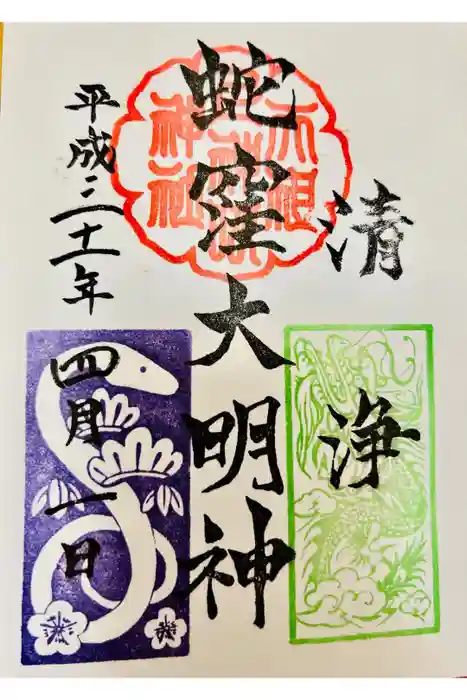 清浄
蛇窪大明神
平成三十一年
四月一日
天祖
神社